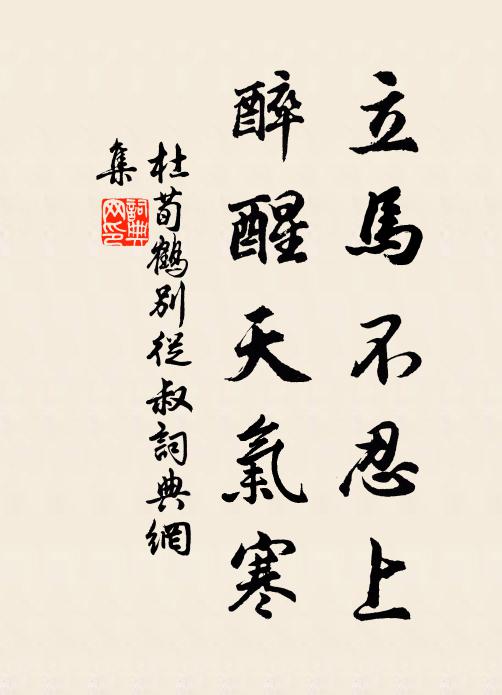 立馬不忍上
醉醒天氣寒
杜荀鶴別從叔詞典網
集
詞典
网印